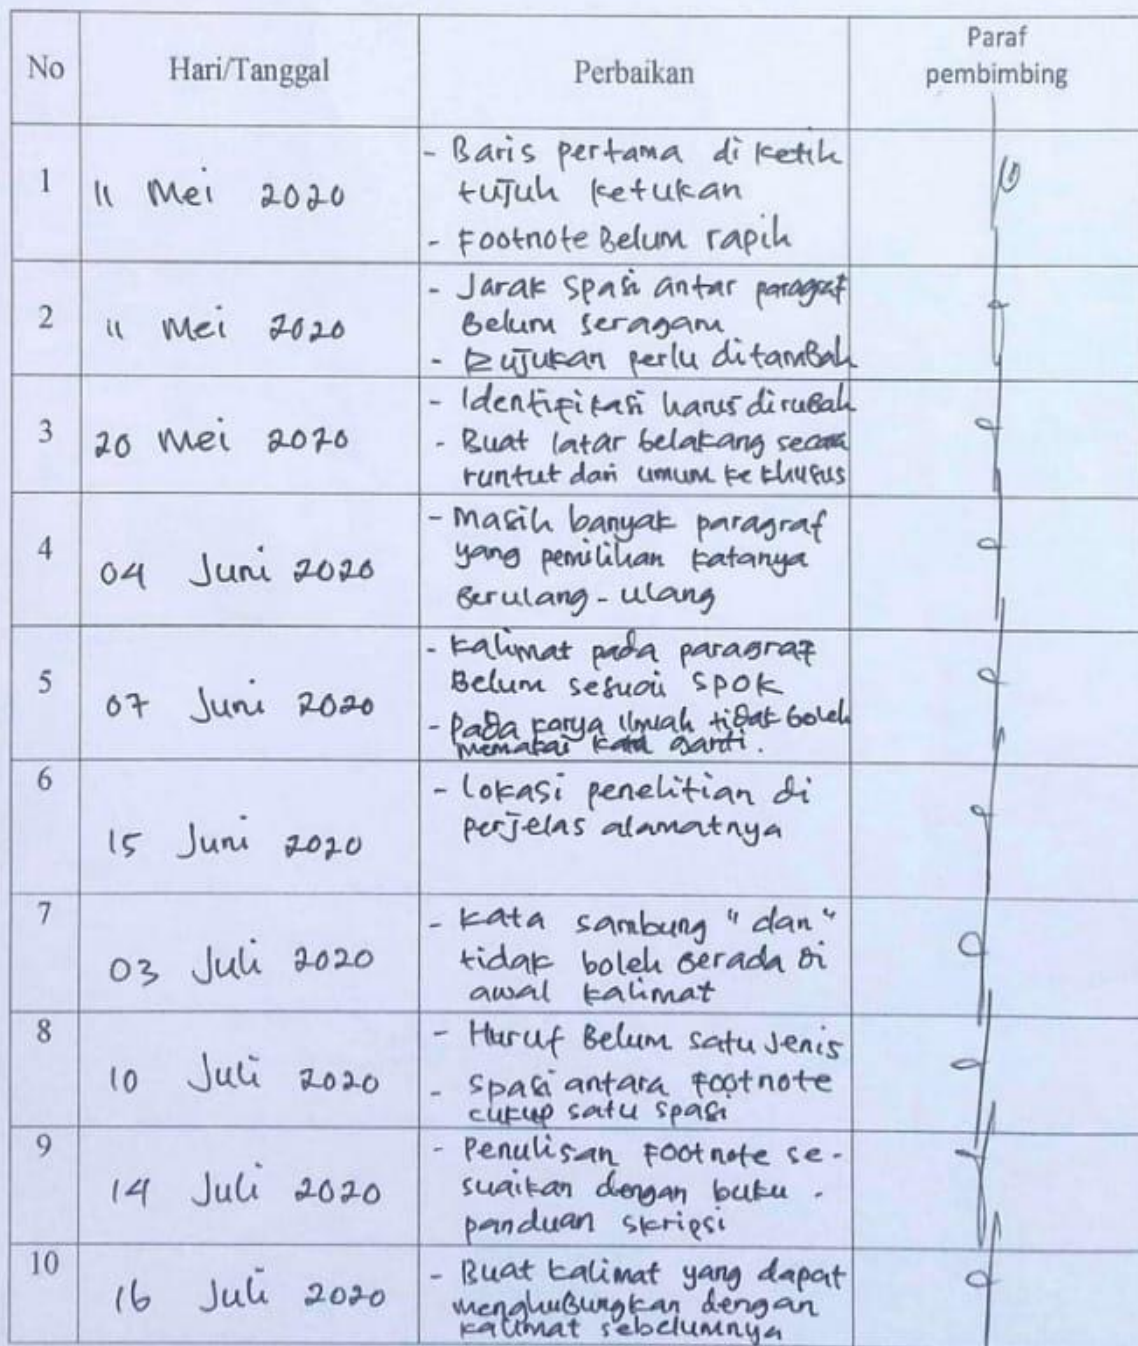 No Hari/Tanggal Perbaikan Paraf
pembimbing
1 11 Mei 2020 - Baris pertama di ketik
tujuh ketukan
- Footnote Belum rapih
2 11 Mei 2020 - Jarak spasi antar paragraf
Belum seragam
- Rujukan perlu ditambah
3 20 Mei 2020 - Identifikasi harus dirubah
- Buat latar belakang secara
runtut dari umum ke khusus
4 04 Juni 2020 - Masih banyak paragraf
yang pemilihan katanya
Berulang-ulang
5 07 Juni 2020 - Kalimat pada paragraf
Belum sesuai SPOK
- Pada karya ilmiah tidak boleh
memakai kata ganti.
6 15 Juni 2020 - Lokasi penelitian di
perjelas alamatnya
7 03 Juli 2020 - Kata sambung "dan"
tidak boleh Berada di
awal kalimat
8 10 Juli 2020 - Huruf Belum satu Jenis
- Spasi antara Footnote
cukup satu spasi
9 14 Juli 2020 - Penulisan Footnote se-
suaikan dengan buku -
panduan skripsi
10 16 Juli 2020 - Buat kalimat yang dapat
menghubungkan dengan
kalimat sebelumnya